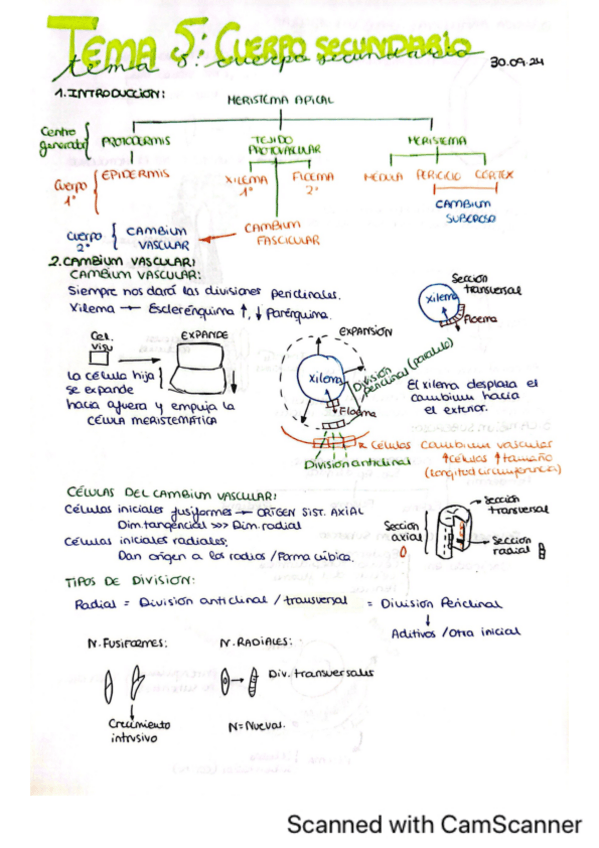 TEMA 5: CUERPO SECUNDARIO
tema 5: cuerpo secundario
30.09.24
1. INTRODUCCION:
MERISTEMA APICAL
Centro generador
PROTODERMIS
TEJIDO PROTOVASCULAR
MERISTEMA
Cuerpo 1º
EPIDERMIS
XILEMA 1º
FLOEMA 2º
MEDULA
PERICICLO
CORTEX
CAMBIUM SUBEROSO
Cuerpo 2º
CAMBIUM VASCULAR
CAMBIUM FASCICULAR
2. CAMBIUM VASCULAR:
CAMBIUM VASCULAR:
Siempre nos dará las divisiones periclinales.
Xilema → Esclerénquima ↑, ↓ Parénquima.
Sección transversal
Xilema
Floema
Cel.
EXPANDE
La célula hija
se expande
hacia afuera y empuja la
CÉLULA MERISTEMÁTICA
EXPANSIÓN
Xilema
Floema
División periclinal (paralelo)
División anticlinal
El xilema desplaza el
cambium hacia
el exterior.
Células Cambium vascular
↑células ↑tamaño
(longitud circumferencia)
CÉLULAS DEL CAMBIUM VASCULAR:
Células iniciales fusiformes → ORIGEN SIST. AXIAL
Dim. tangencial >>> Dim. radial
Células iniciales radiales:
Dan origen a los radios / Forma cúbica.
Sección axial
Sección transversal
Sección radial
TIPOS DE DIVISION:
Radial = División anticlinal / transversal = División Periclinal
↓
Aditivos / Otra inicial
N. FUSIFORMES:
N. RADIALES:
Div. transversales
Crecimiento
intrusivo
N = Nuevas.
Scanned with CamScanner